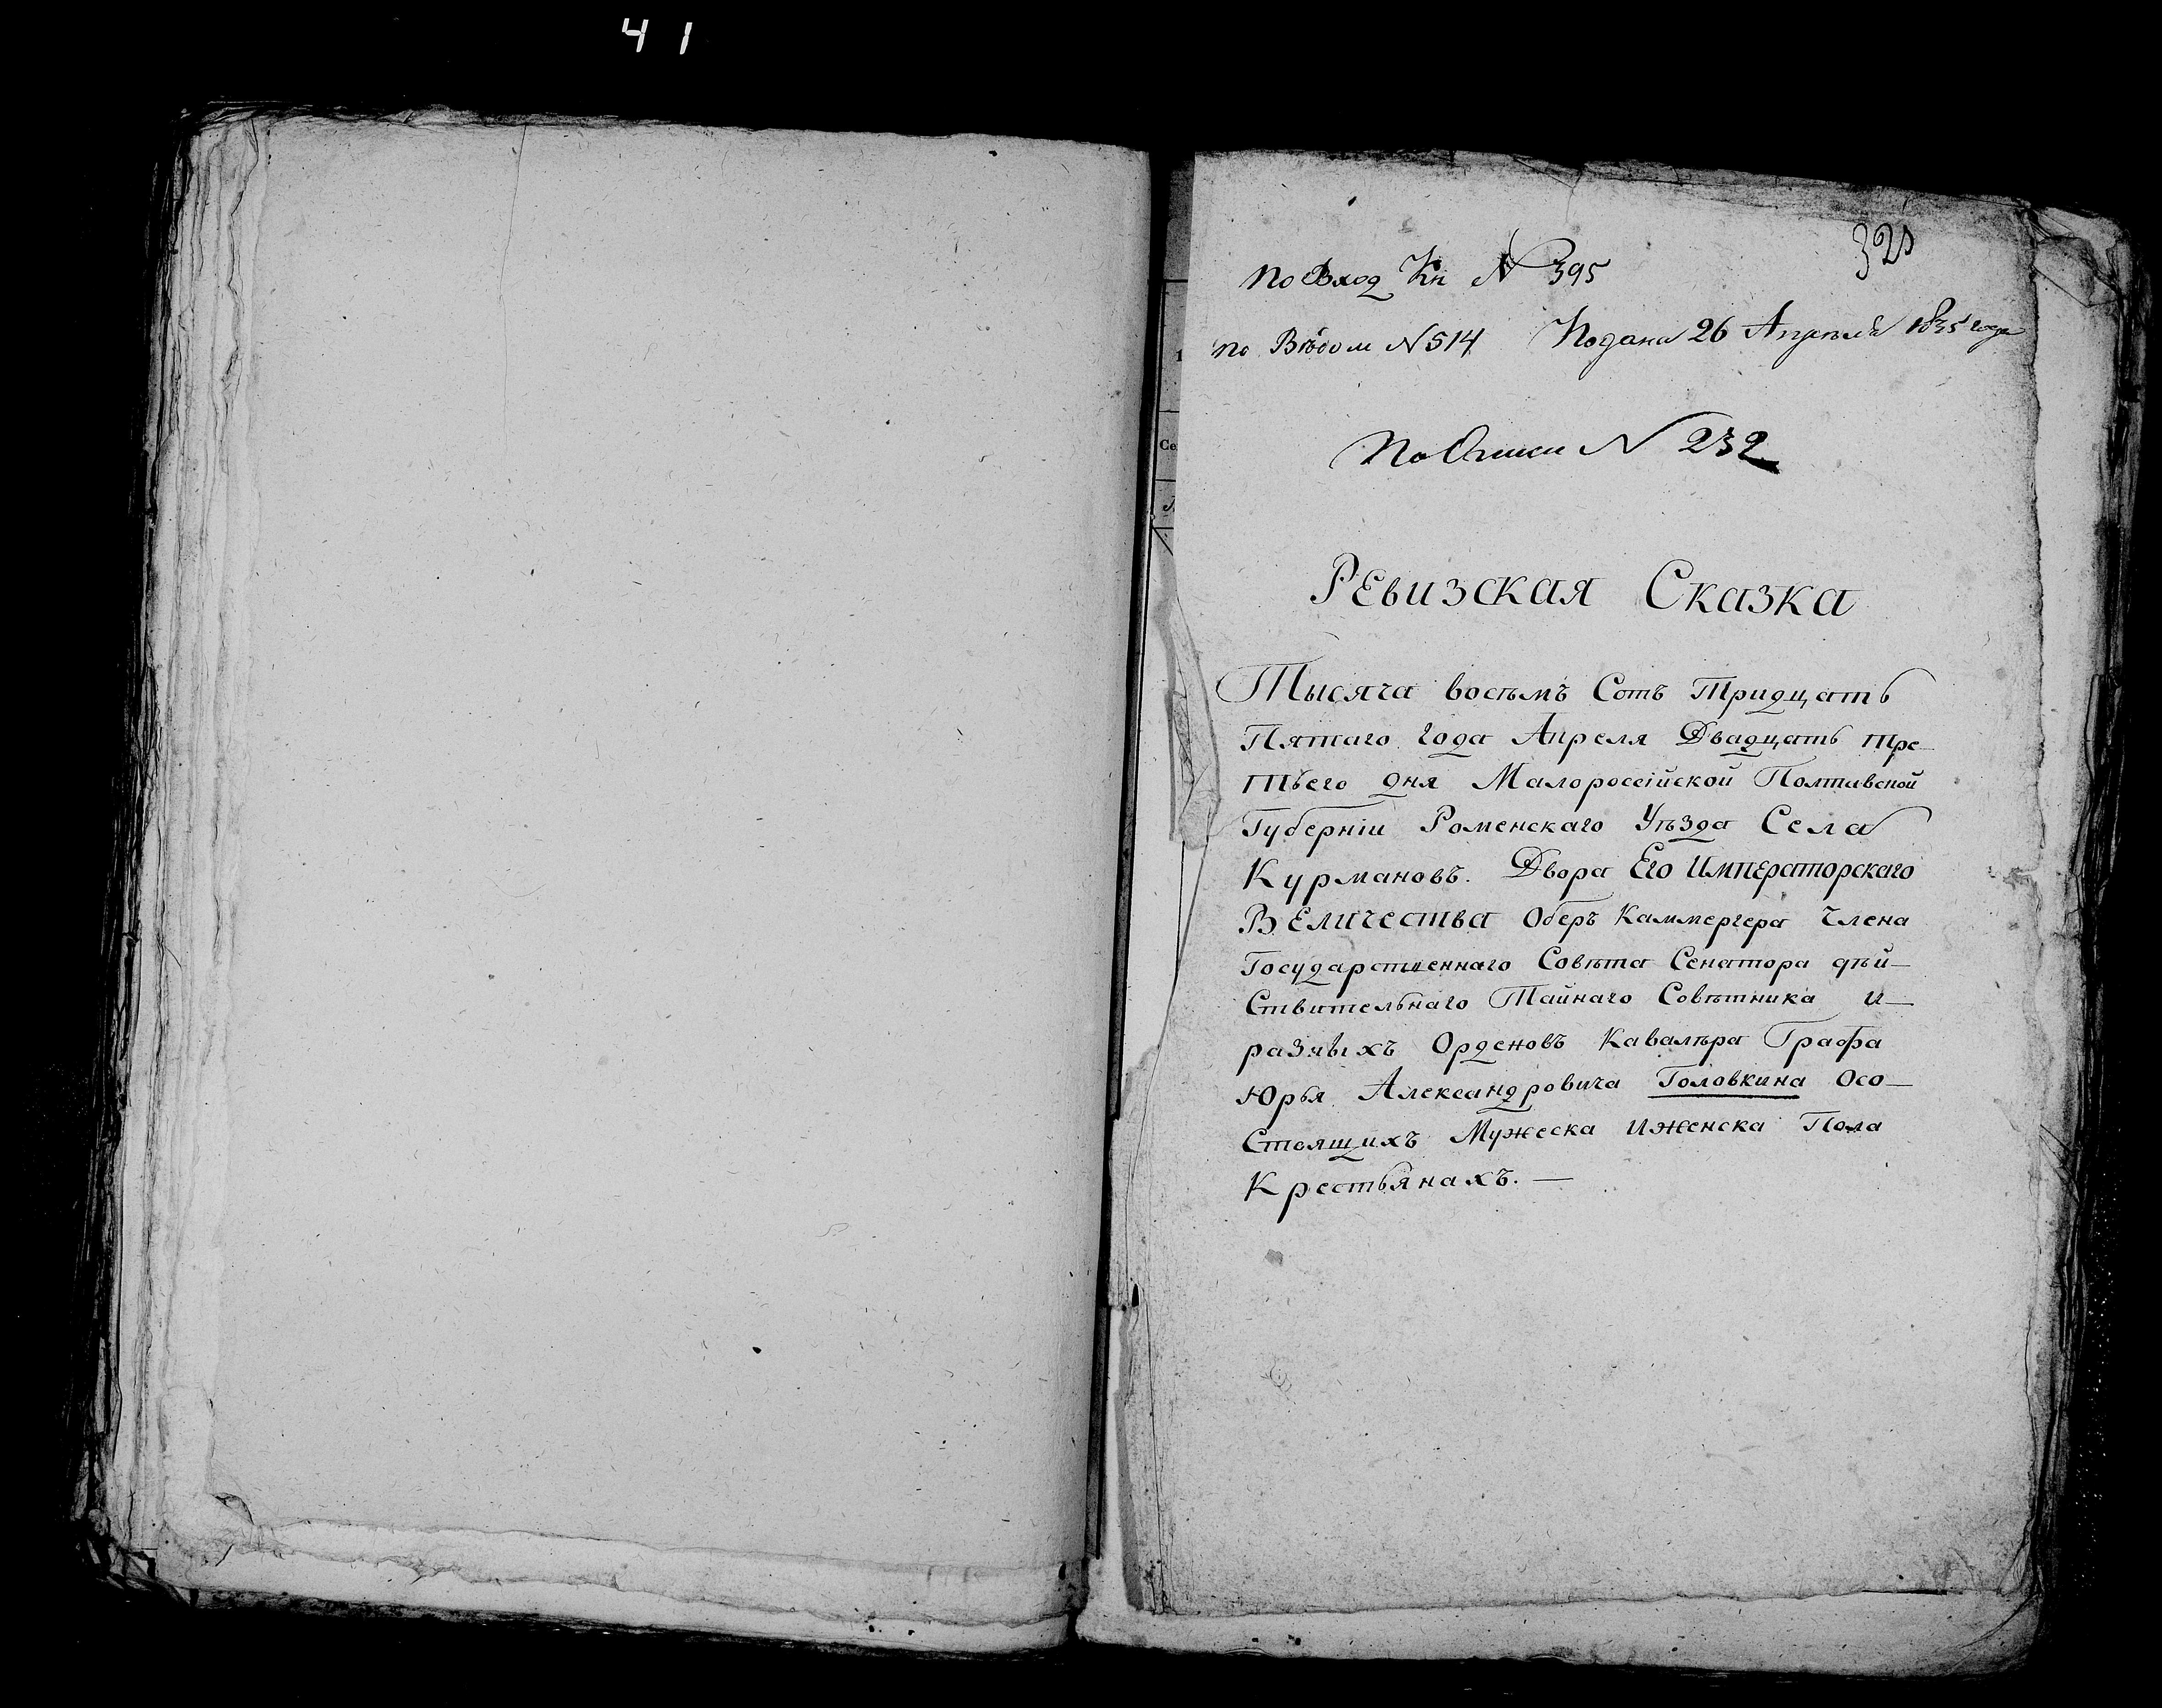 41
325
По Вход Кн N 395
по Вѣдом N 514 Подана 26 Апреля 1835 года
По Описи N 232
РЕвизская Сказка
Тысяча восемъ Сотъ Тридцать
Пятаго года Апреля Двадцать тре-
тьего дня Малороссійской Полтавской
Губерніи Роменскаго Уѣзда Села
Курмановъ. Двора Его Императорскаго
ВЕличества Оберъ Каммергера Члена
Государственнаго Совѣта Сенатора дѣй-
Ствительнаго Тайнаго Совѣтника и-
разныхъ Орденовъ Кавалѣра Графа
Юрья Александровича Головкина Осо-
Стоящихъ Мужеска иженска Пола
Крестьянахъ. —